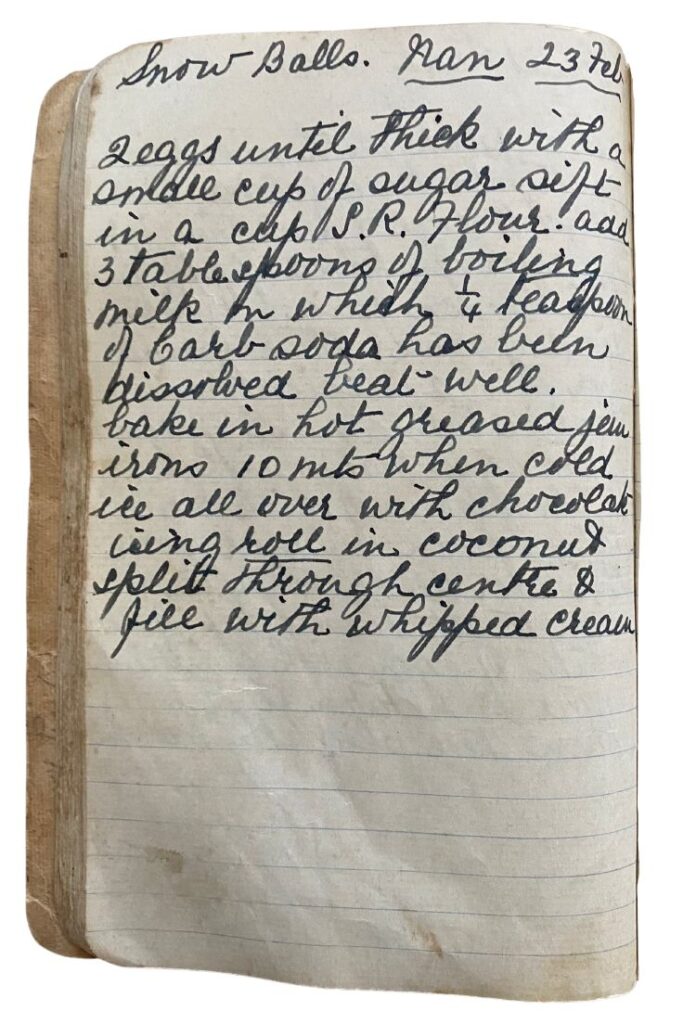 Snow Balls. Nan 23 Feb
2 eggs until thick with a
small cup of sugar sift
in a cup S.R. Flour. add
3 tablespoons of boiling
milk in which ¼ teaspoon
of Carb soda has been
dissolved beat well.
bake in hot greased jem
irons 10 mts when cold
ice all over with chocolate
icing roll in coconut
split through centre &
fill with whipped cream